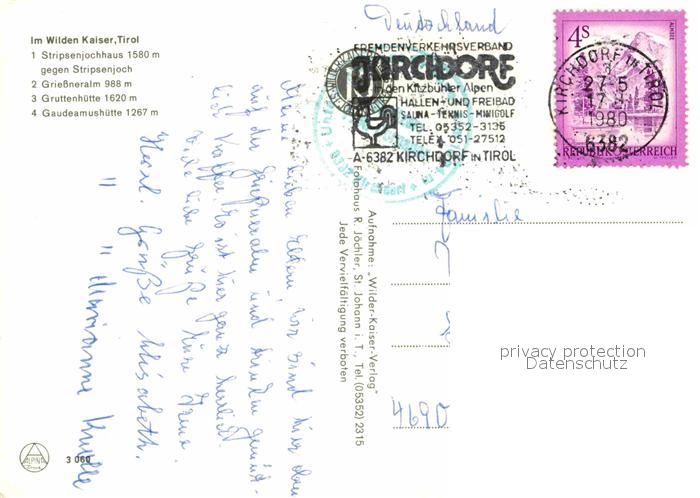 Im Wilden Kaiser, Tirol
1 Stripsenjochhaus 1580 m
gegen Stripsenjoch
2 Grießneralm 988 m
3 Gruttenhütte 1620 m
4 Gaudeamushütte 1267 m
Deutschland
FREMDENVERKEHRSVERBAND
KIRCHDORF
in den Kitzbühler Alpen
HALLEN- UND FREIBAD
SAUNA-TENNIS-MINIGOLF
TEL. 05352-3136
TELEX 051-27512
A-6382 KIRCHDORF IN TIROL
4 S
KIRCHDORF IN TIROL
27.5
1980
6382
REPUBLIK ÖSTERREICH
Meine lieben Eltern, wir sind hier
auf der Grießneralm und trinken
Kaffee. Es ist hier ganz herrlich.
Viele liebe Grüße
Herzl. Grüße Elisabeth.
" " Marianne
Aufnahme: „Wilder-Kaiser-Verlag"
Fotohaus R. Jöchler, St. Johann i. T., Tel. (05352) 2315
Jede Vervielfältigung verboten
Familie
4690
privacy protection
Datenschutz
ALPINA
3 060